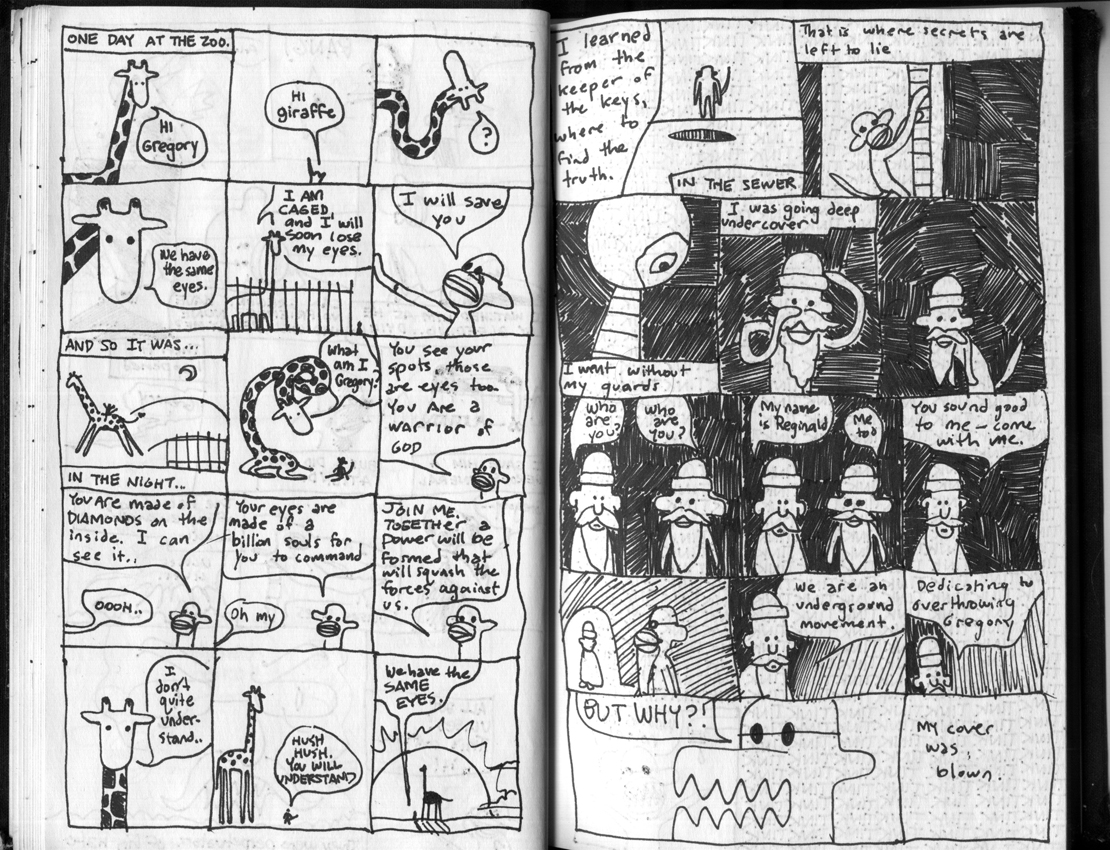 ONE DAY AT THE ZOO.
HI
Gregory
HI
giraffe
?
We have
the same
eyes.
I AM
CAGED
and I will
soon lose
my eyes.
I will save
you
AND SO IT WAS...
IN THE NIGHT...
What
am I
Gregory?
You see your
spots, those
are eyes too.
You are a
warrior of
GOD
You are made of
DIAMONDS on the
inside. I can
see it..
OOOH..
Your eyes are
made of a
billion souls for
you to command
Oh my
JOIN ME.
TOGETHER a
power will be
formed that
will squash the
forces against
us.
I
don't
quite
under-
stand..
HUSH
HUSH.
YOU WILL
UNDERSTAND
We have the
SAME
EYES.
I learned
from the
keeper of
the keys,
where to
find the
truth.
IN THE SEWER
That is where secrets are
left to lie
I was going deep
undercover
I went without
my guards
Who
are
you?
Who
are
you?
My name
is Reginald
Me
too
You sound good
to me - come
with me.
We are an
underground
movement.
Dedicating to
overthrowing
Gregory
BUT WHY?!
My cover
was
blown.